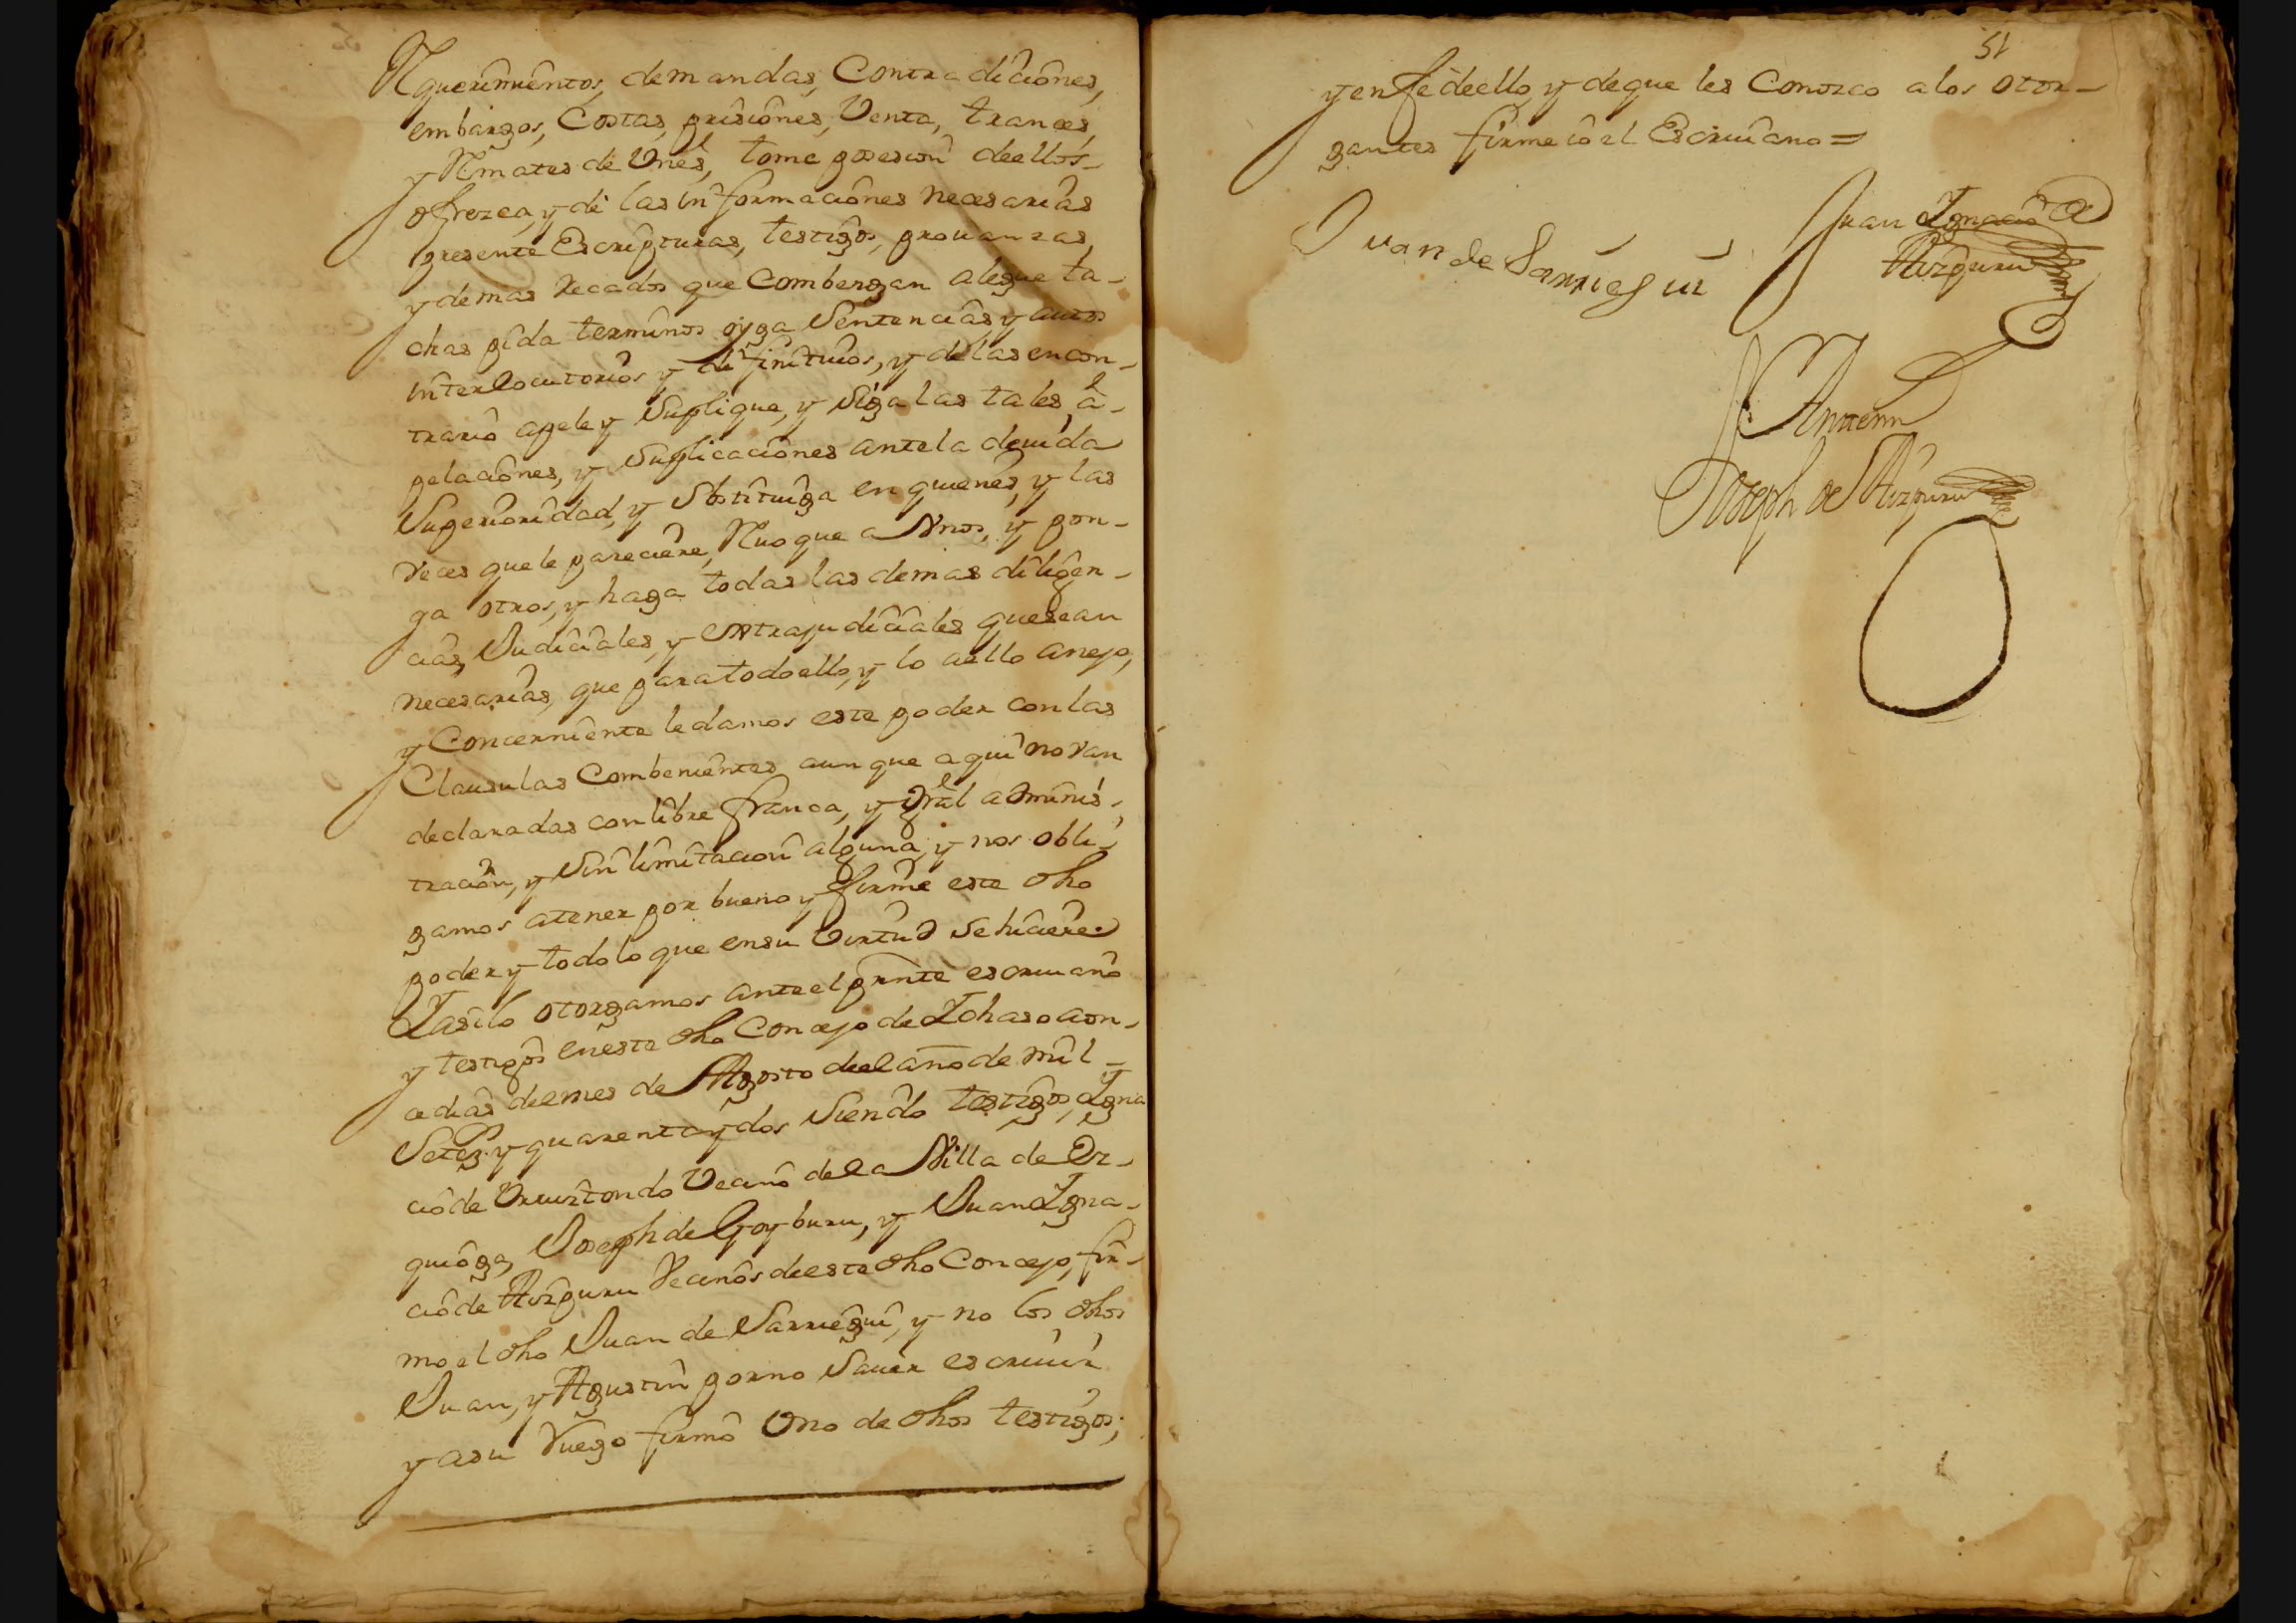 Requerimientos, demandas, Contradiciones,
embargos, Costas, prisiones, Venta, trances,
y Remates de Vnes, tome posesion deellos
ofrezca, y dé las informaciones necesarias
presente Escripturas, testigos, prouanzas,
y demas recados que Combengan alegue ta-
chas pida terminos oyga Sentencias y autos
interlocutorios y difinitiuos, y de las encon-
trario apele y Suplique, y Siga las tales à-
pelaciones, y Suplicaciones ante la deuida
Superioridad, y Sostituiga en quienes, y las
veces que le pareciere, Reuoque a Vnos, y pon-
ga otros, y haga todas las demas diligen-
cias, Judiciales, y extrajudiciales que sean
necesarias, que para todo ello, y lo aello anejo,
y Concerniente le damos este poder con las
Clausulas Combenientes aun que aqui no van
declaradas con libre franca, y gral adminis-
tracion, y Sin limitacion alguna, y nos obli-
gamos atener por bueno y firme este dho
poder y todo lo que en su Virtud se hiciere
Y asilo otorgamos ante el prnte escriuano
y testigos en este dho Concejo de Ichaso aon-
ce dias del mes de Agosto del año de mil
Setez. y quarenta y dos Siendo testigos, Igna
cio de Vrruztondo Vecino de la Villa de Ez-
quioga, Joseph de Goyburu, y Juan Igna-
cio de Aizpuru Vecinos de este dho Concejo, fir-
mo el dho Juan de Sarriegui, y no los dhos
Juan, y Agustin por no Sauer escriuir
y a su Ruego firmó Vno de dhos testigos;
51
y en fe de ello, y de que les Conozco a los otor-
gantes firme io el Escriuano =
Juan de Sarriegui
Juan Ignacio de
Aizpuru
Antemi
Joseph de Aizpuru